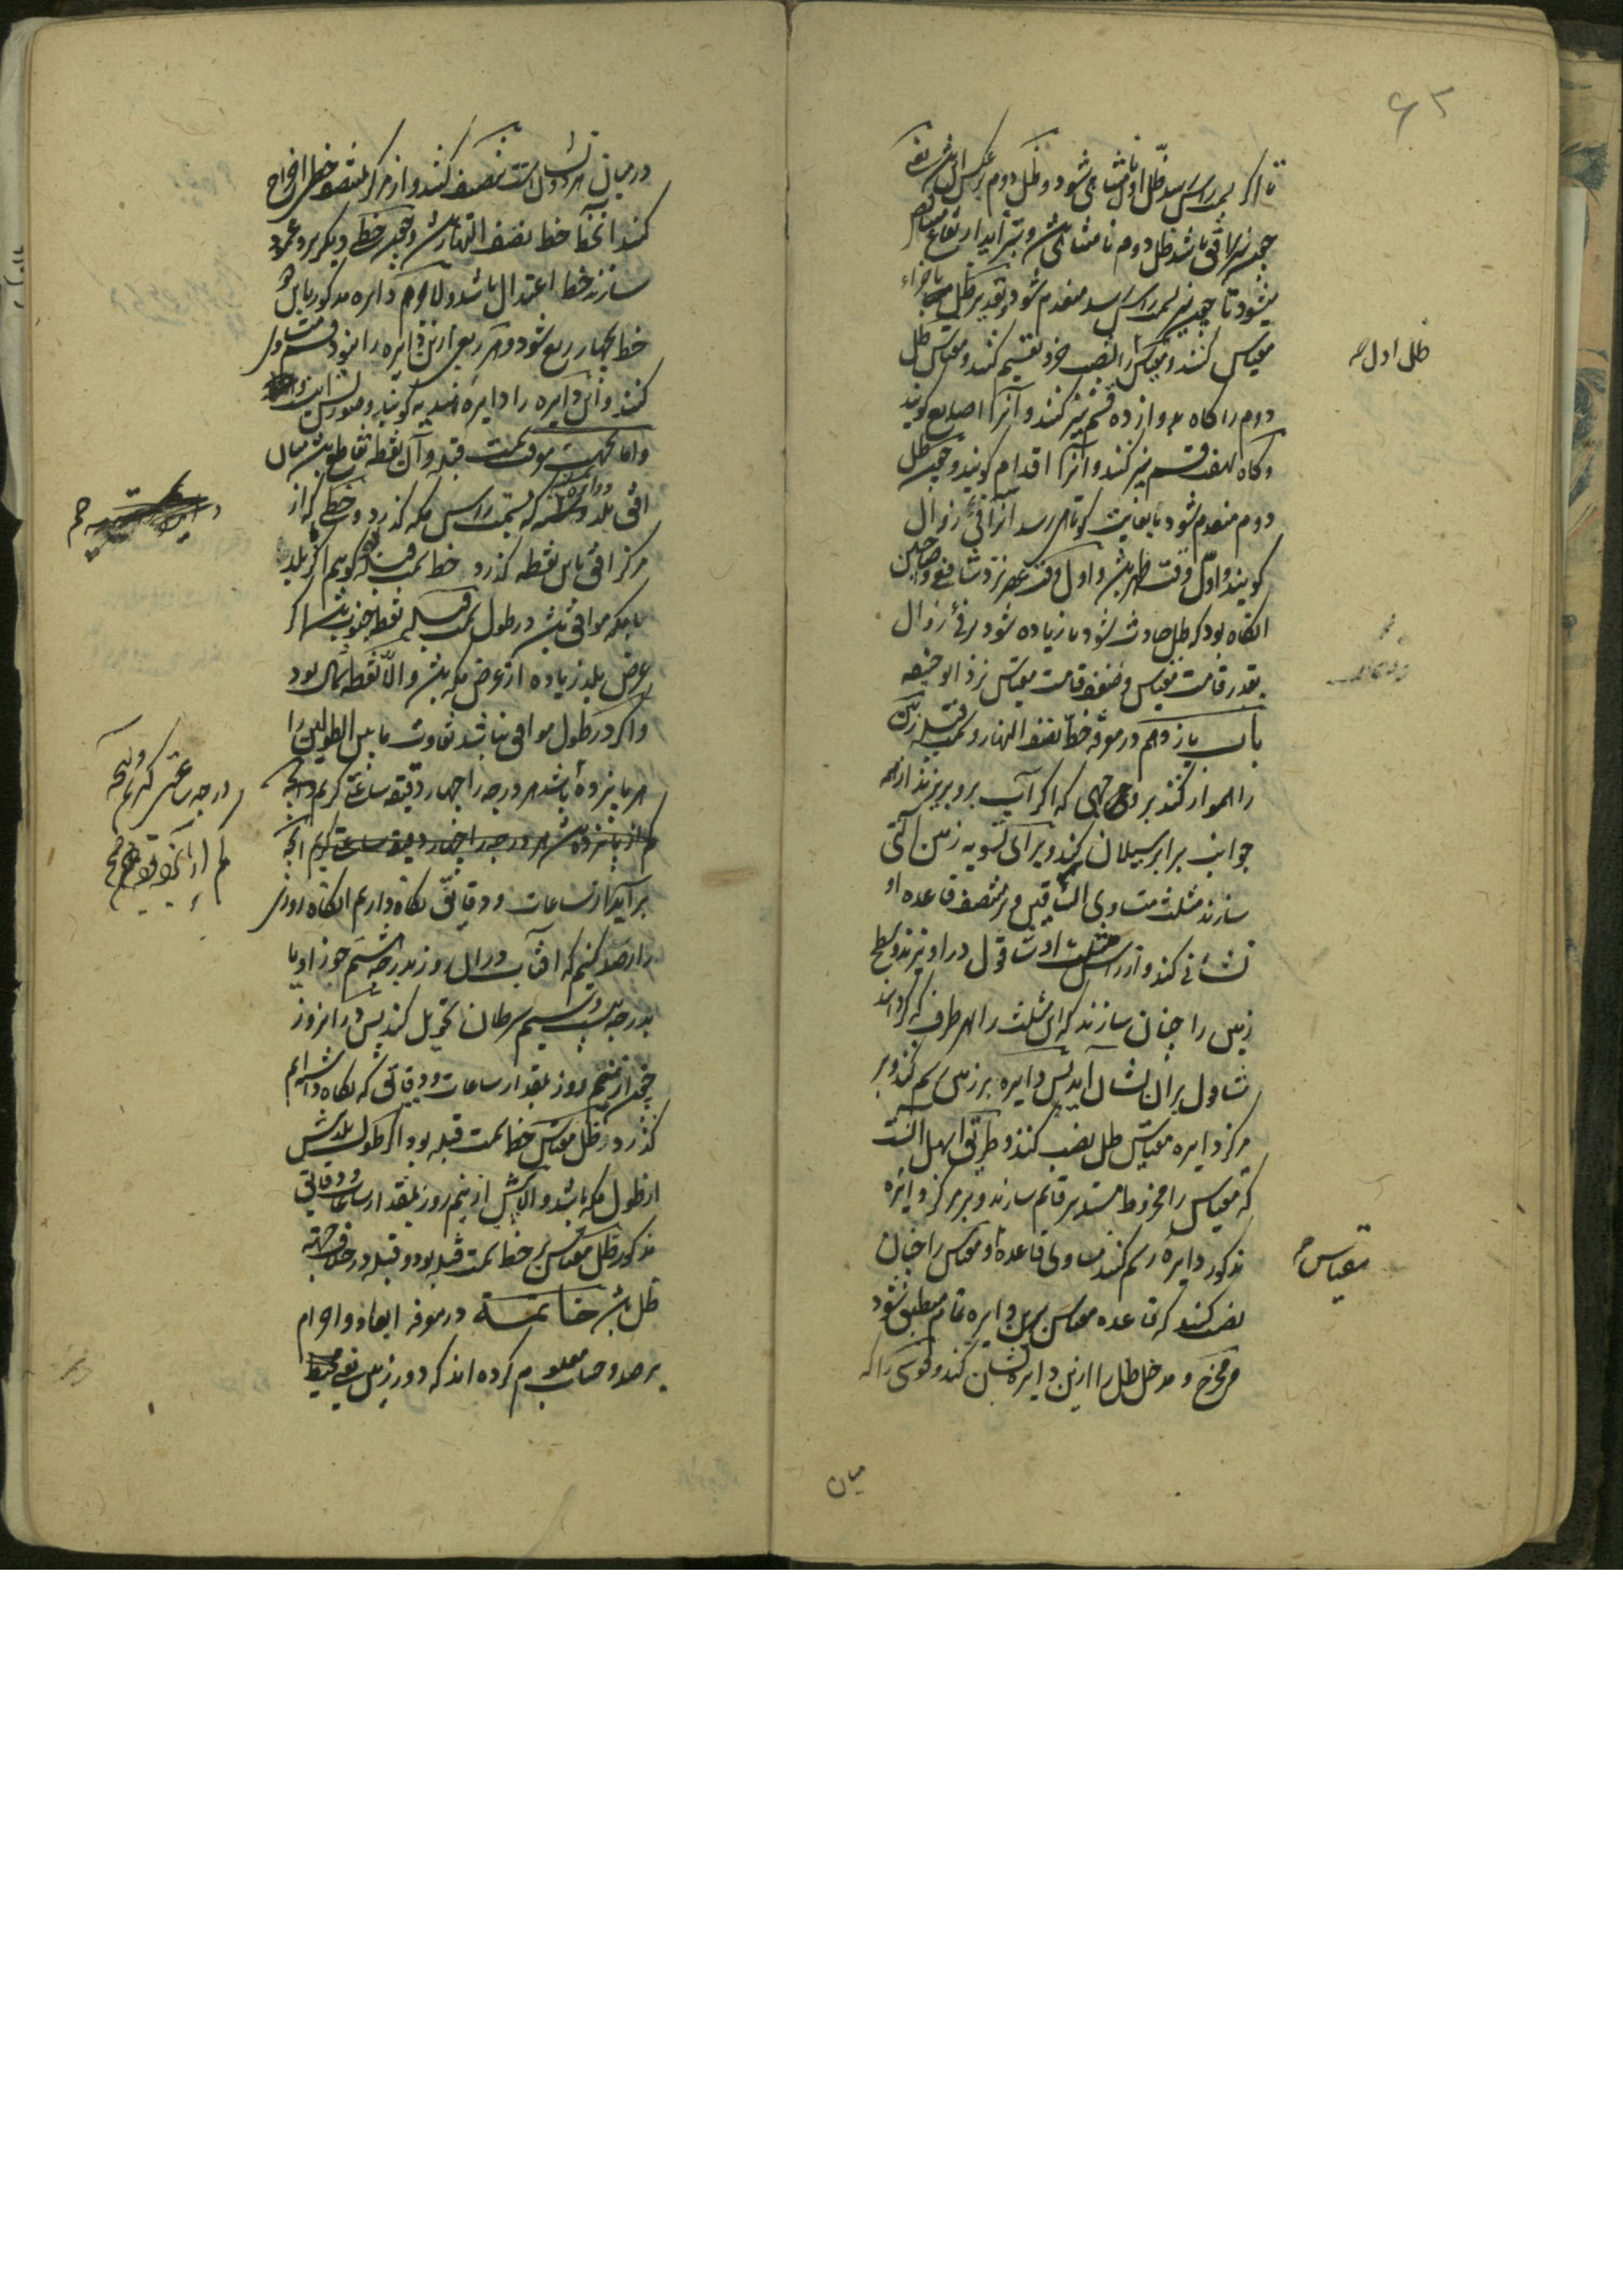 تا اگر بسمت راس رسد ظل اول نامتناهی شود و ظل دوم بر عکس این باشد یعنی
چون نیر بر افق باشد ظل دوم نامتناهی باشد و بتزاید ارتفاع متناقص
میشود تا چون نیر بسمت راس رسد منعدم شود و تقدیر ظل باجزاء
مقیاس کنند و مقیاس را بشصت جزو تقسیم کنند و مقیاس ظل
دوم را گاه بدوازده قسم نیز کنند و آنرا اصابع گویند
و گاه بهفت قسم نیز کنند و آنرا اقدام گویند و چون ظل
دوم منعدم شود یا بغایت کوتاهی رسد آنرا فیء زوال
گویند و اول وقت ظهر باشد و اول وقت عصر نزد شافعی و صاحبین
آنگاه بود که ظل حادث شود یا زیاده شود بر فیء زوال
بقدر قامت مقیاس و ضعف قامت مقیاس نزد ابو حنیفه
باب یازدهم در معرفه خط نصف النهار و سمت قبله زمین
را هموار کنند بر وجهی که اگر آب برو بریزند از همه
جوانب برابر سیلان کند و برای تسویه زمین آلتی
سازند مثلث متساوی الساقین و بر منتصف قاعده او
نشانی کنند و از راس مثلث شاقول در آویزند و سطح
زمین را چنان سازند که این مثلث را بهر طرف که گردانند
شاول بران نشان آید پس دایره بر زمین رسم کنند و بر
مرکز دایره مقیاس ظل نصب کنند و طریق اسهل آنست
که مقیاس را مخروط مستدیر قائم سازند و بر مرکز دایره
مذکور دایره رسم کنند مساوی قاعده او و مقیاس را چنان
نصب کنند که قاعده مقیاس برین دایره تمام منطبق شود
و مخرج و مدخل ظل را ازین دایره نشان کنند و قوسی را که
ظل اول صح
مقیاس صح
میان
در میان هر دو نشان است تنصیف کنند و از مرکز بمنتصف خطی اخراج
کنند آنخط خط نصف النهار باشد و چون خطی دیگر برو عمود
سازند خط اعتدال باشد و لا محاله دایره مذکور باین دو
خط بچهار ربع شود و هر ربعی ازین دایره را بنود قسمت
کنند و این دایره را دایره هندیه گویند و صورتش اینست
و اما بجهت معرفت سمت قبله و آن نقطه تقاطع باشد میان
افق بلد و دائره که بسمت راس مکه گذرد و خطی که از
مرکز افق باین نقطه گذرد خط سمت قبله گوییم اگر بلد
با مکه موافق باشد در طول سمت قبله نقطه جنوب باشد اگر
عرض بلد زیاده از عرض مکه باشد و الا نقطه شمال بود
و اگر در طول موافق نباشد تفاوت ما بین الطولین را
هر پانزده باشد هر درجه را چهار دقیقه ساعت گیریم و آنچه
برآید از ساعات و دقائق نگاه داریم آنگاه روزی
را رصد کنیم که افتاب دران روز بدرجه هشتم جوزا و یا
بدرجه بیست و سیم سرطان تحویل کند پس در آنروز
چون از نیم روز بمقدار ساعات و دقایق که نگاه داشته‌ایم
گذرد ظل مقیاس خط سمت قبله بود اگر طول بلد بیش
از طول مکه باشد و الا پیش از نیم روز بمقدار ساعات و دقایق
مذکور ظل مقیاس بر خط سمت قبله بود و قبله در خلاف جهة
ظل باشد خاتمة در معرفه ابعاد و اجرام
برصد و حساب معلوم کرده اند که دور زمین یعنی محیط